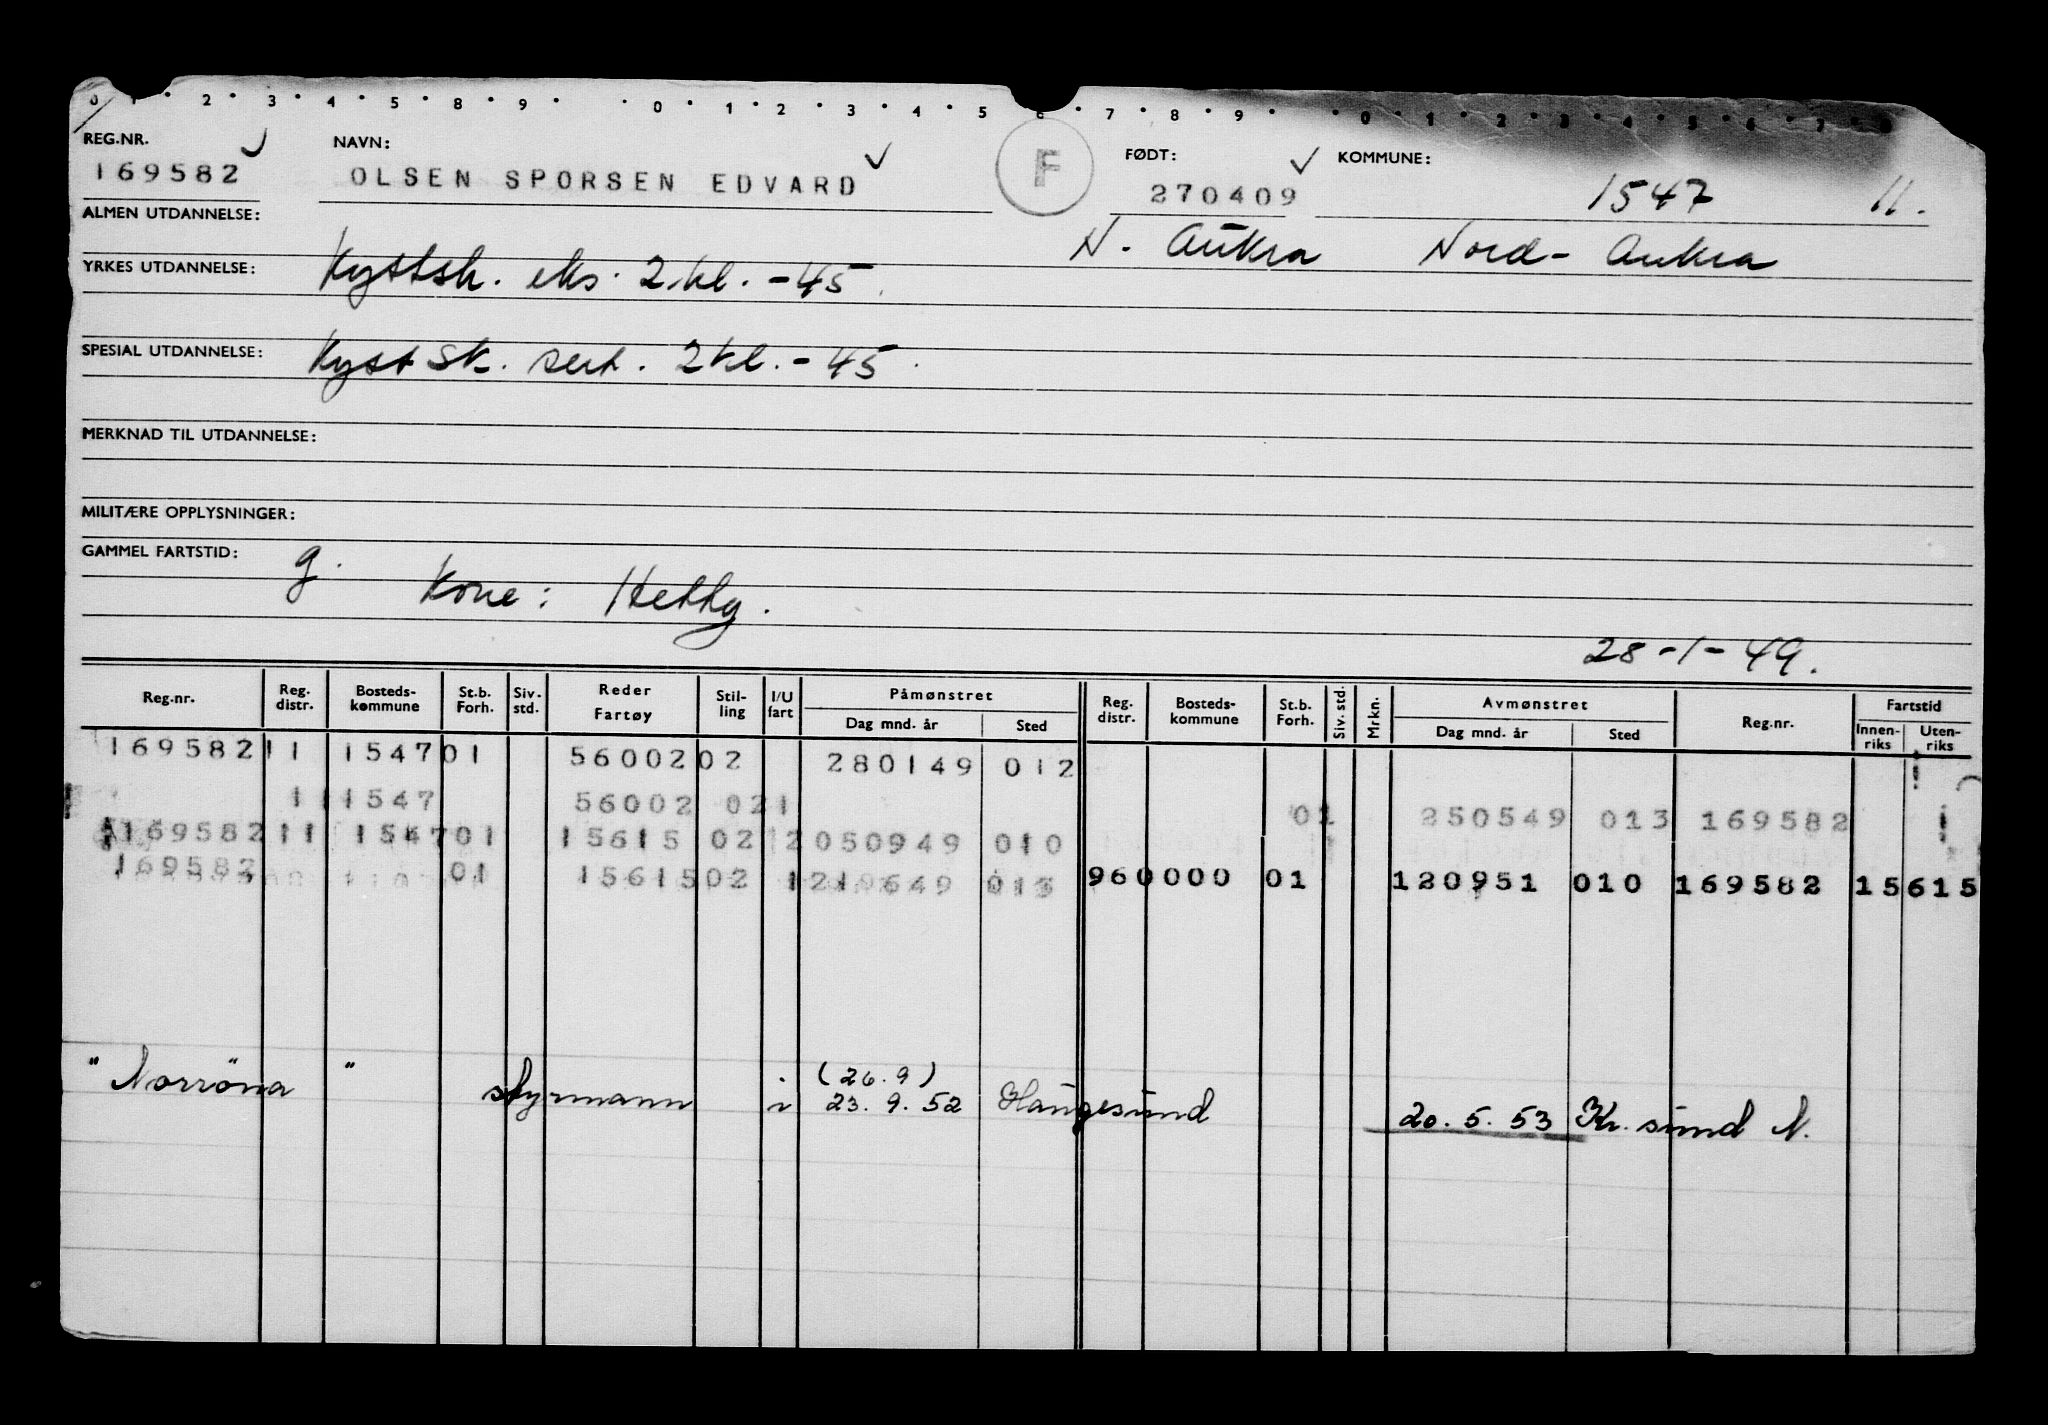 0 1 2 3 4 5 8 9 0 1 2 3 4 5 6 7 8 9 0 1 2 3 4 5 6 7 8
REG.NR. NAVN: F FØDT: KOMMUNE:
169582 OLSEN SPORSEN EDVARD 270409 1547 11.
ALMEN UTDANNELSE: N. Aukra Nord-Aukra
YRKES UTDANNELSE: Kystsk. eks. 2 kl. -45.
SPESIAL UTDANNELSE: Kyst Sk. sert. 2 kl. - 45.
MERKNAD TIL UTDANNELSE:
MILITÆRE OPPLYSNINGER:
GAMMEL FARTSTID: g. Kone: Hetty.
28-1-49.
Reg.nr. Reg. distr. Bosteds-kommune St.b. Forh. Siv.std. Reder Fartøy Stil-ling I/U fart Påmønstret Dag mnd. år Sted Reg. distr. Bosteds-kommune St.b. Forh. Siv. std. Mrkn. Avmønstret Dag mnd. år Sted Reg.nr. Fartstid Innen-riks Uten-riks
169582 11 1547 01 56002 02 280149 012
1 1547 56002 02 1 01 250549 013 169582
169582 11 1547 01 15615 02 2 050949 010
169582 01 15615 02 1 649 013 960000 01 120951 010 169582 15615
"Norröna" styrmann i (26.9) 23. 9. 52 Haugesund 20. 5. 53 Kr. sund N.